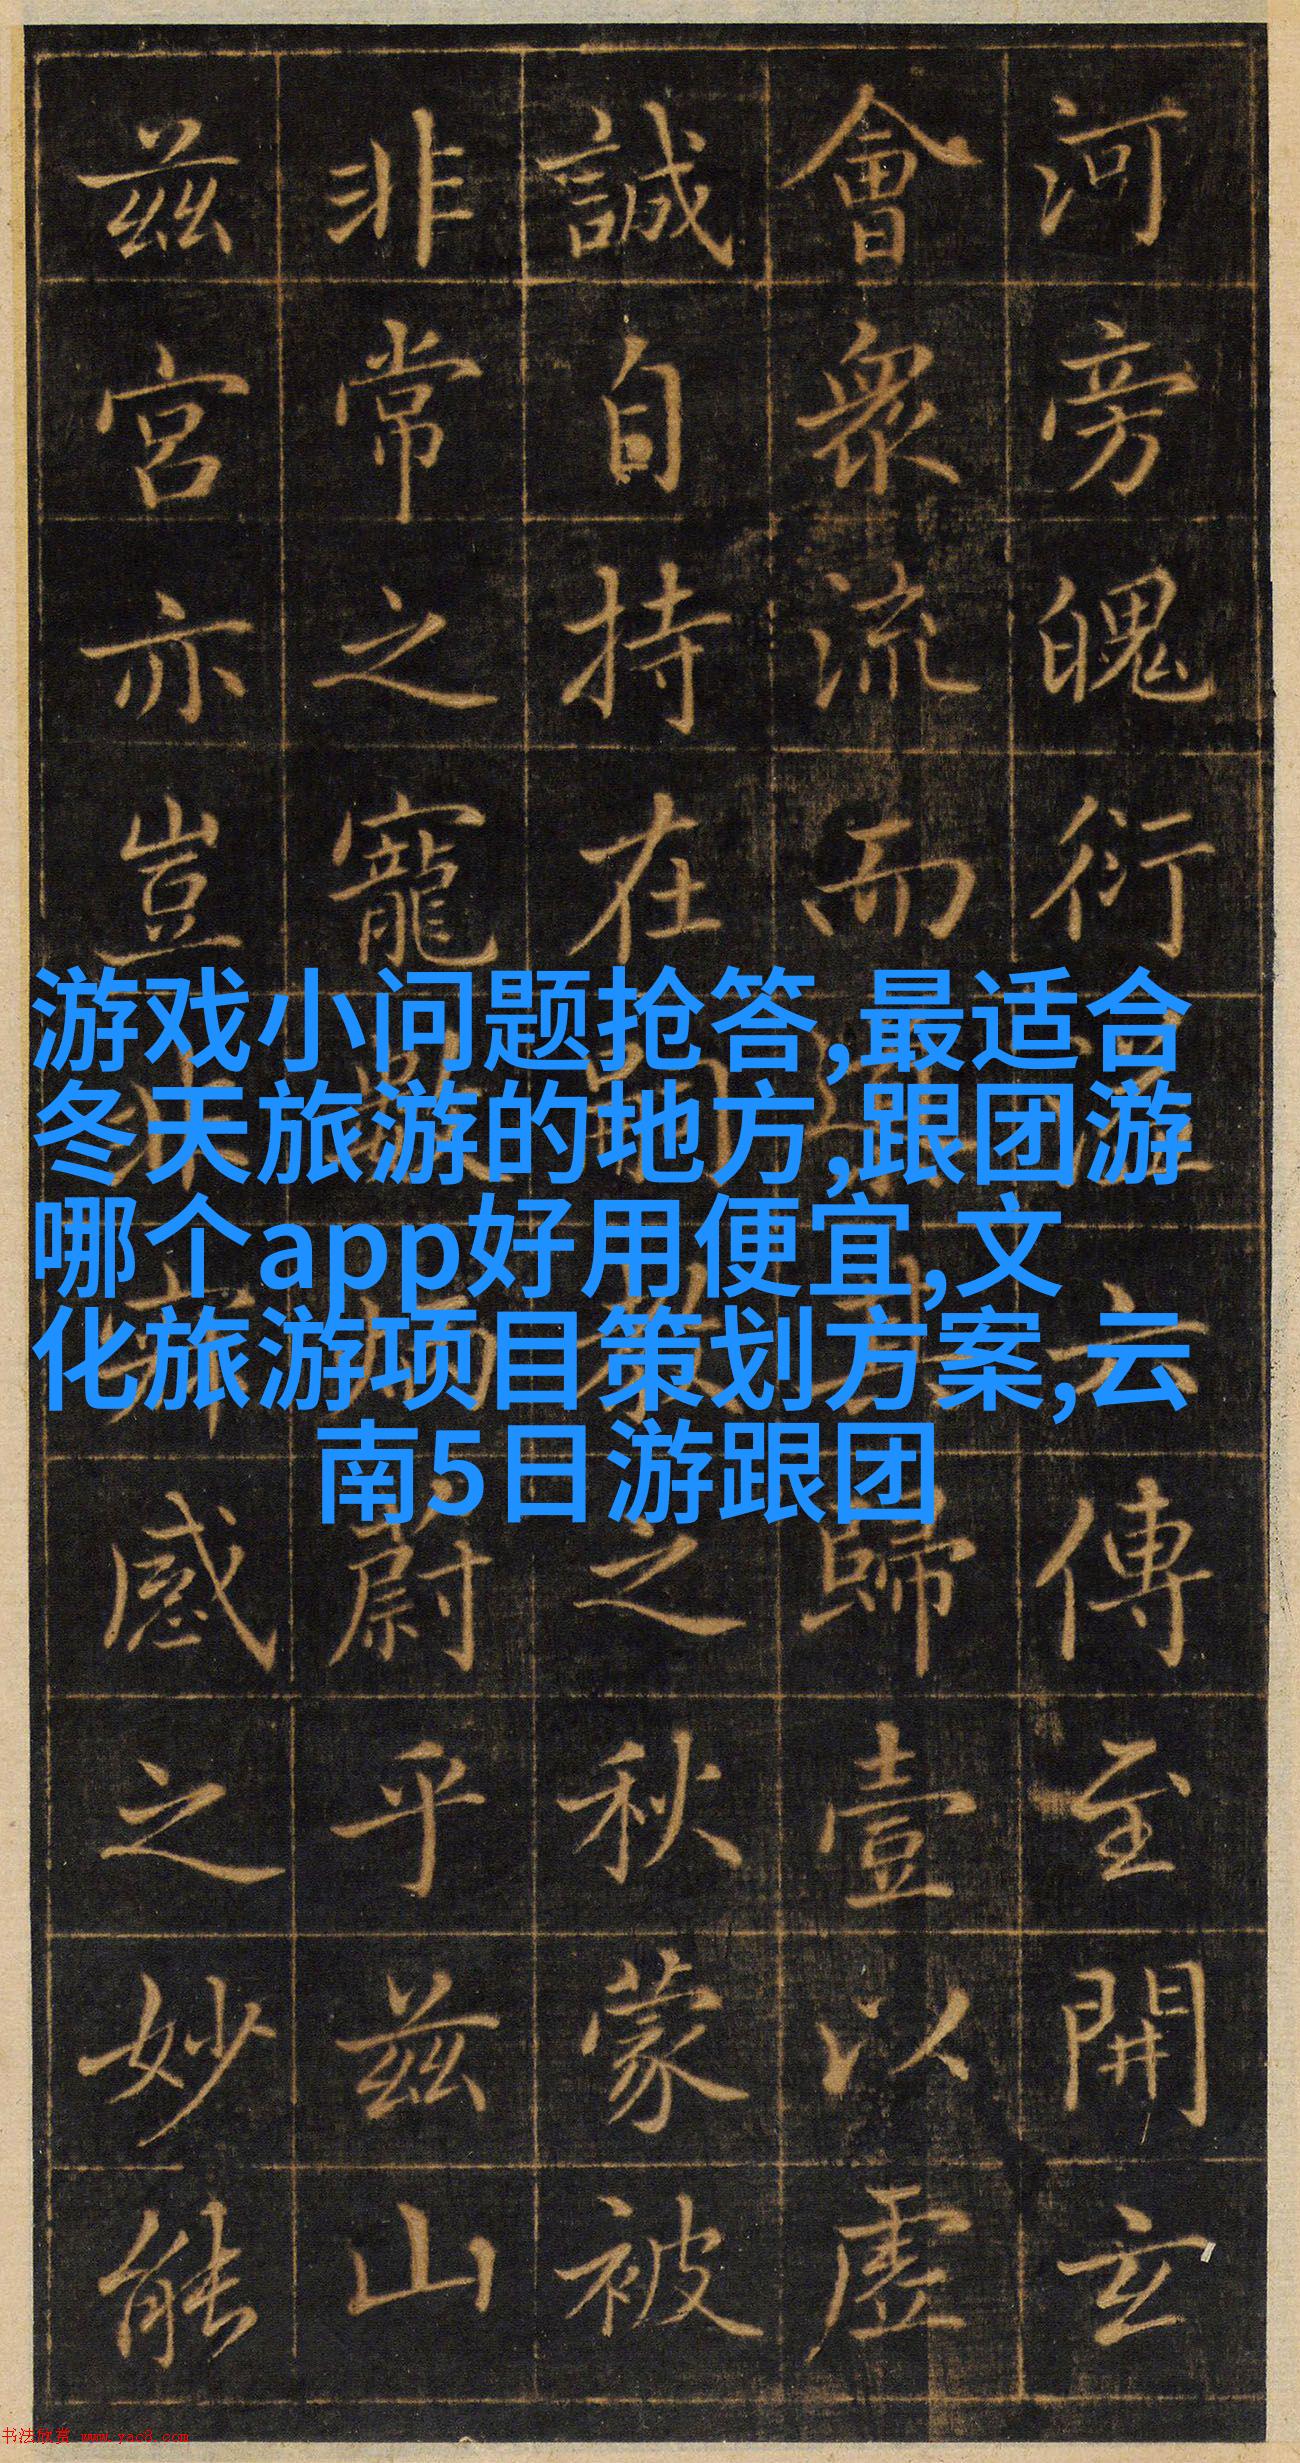 河旁魄衍傳至開玄
會衆流而歸壹以虛
誠自持在之秋蒙被
非常之寵蔚乎茲山
茲宮亦豈感之妙能
游戏小问题抢答,最适合
冬天旅游的地方,跟团游
哪个app好用便宜,文
化旅游项目策划方案,云
南5日游跟团
书法欣赏 www.yac8.com